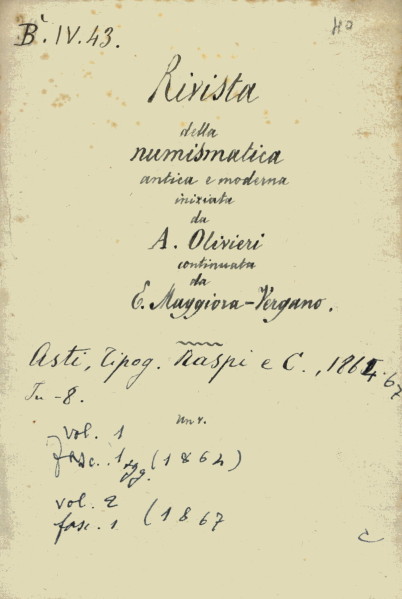 B. IV. 43.
40
Rivista
della
numismatica
antica e moderna
iniziata
da
A. Olivieri
continuata
da
E. Maggiora-Vergano.
Asti, Tipog. Raspi e C., 1864.67
In-8.
vol. 1
fasc. 1 sgg. (1864)
vol. 2
fasc. 1 (1867
C